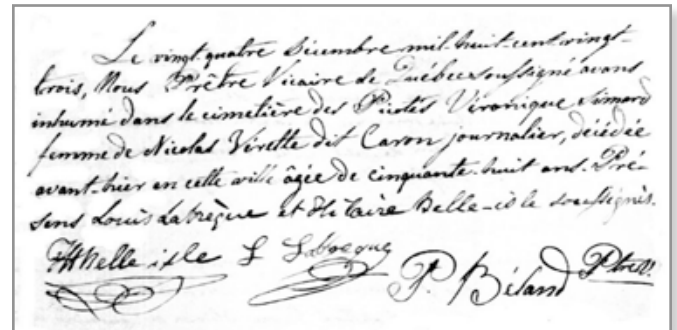 Le vingt-quatre Décembre mil-huit-cent-vingt-
trois, Nous Prêtre Vicaire de Québec soussigné avons
inhumé dans le cimetière des Picotés Véronique Simard
femme de Nicolas Virette dit Caron journalier, décédée
avant-hier en cette ville âgée de cinquante-huit ans. Pré-
sens Louis Labrèque et Hilaire Belle-isle soussignés.
HHBelle isle L Labrèque
P. Béland Ptre V.